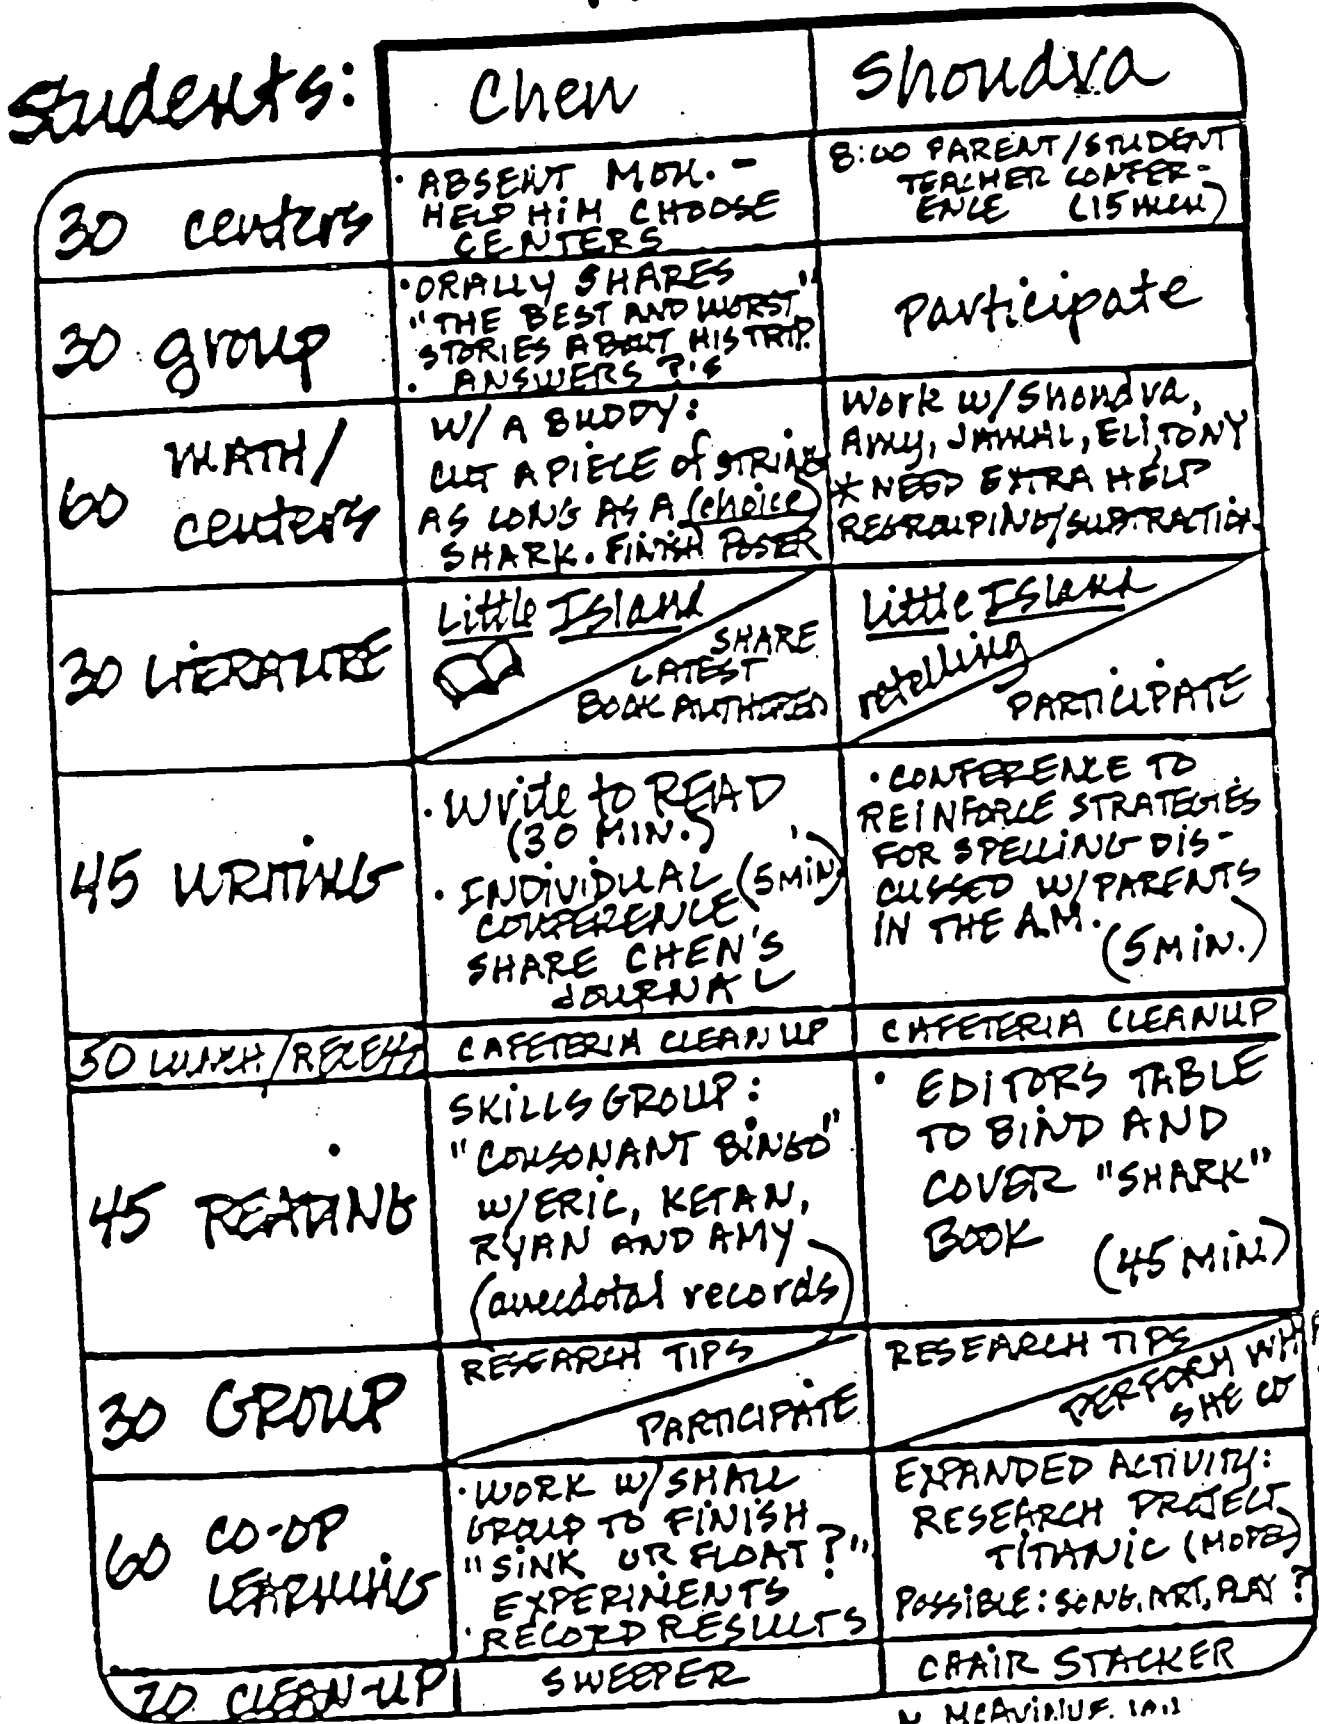 Students:
Chen
Shondra
30 centers
• ABSENT MON. -
HELP HIM CHOOSE
CENTERS
8:00 PARENT/STUDENT
TEACHER CONFER-
ENCE (15 min)
30 group
• ORALLY SHARES
"THE BEST AND WORST"
STORIES ABOUT HIS TRIP.
• ANSWERS ?'s
Participate
60 MATH/
centers
W/ A BUDDY:
CUT A PIECE of STRING
AS LONG AS A (choice)
SHARK. FINISH POSTER
Work w/Shondra,
Amy, JAMAL, ELI, TONY
* NEED EXTRA HELP
REGROUPING/SUBTRACTION
30 LITERATURE
Little Island
SHARE
LATEST
BOOK AUTHORED
Little Island
retelling
PARTICIPATE
45 WRITING
• Write to READ
(30 MIN.)
• INDIVIDUAL (5 MIN)
CONFERENCE
SHARE CHEN'S
JOURNAL
• CONFERENCE TO
REINFORCE STRATEGIES
FOR SPELLING DIS-
CUSSED W/PARENTS
IN THE A.M.
(5 MIN.)
50 LUNCH/RECESS
CAFETERIA CLEAN UP
CAFETERIA CLEANUP
45 READING
SKILLS GROUP:
"CONSONANT BINGO"
W/ERIC, KETAN,
RYAN AND AMY
(anecdotal records)
• EDITORS TABLE
TO BIND AND
COVER "SHARK"
BOOK
(45 MIN)
30 GROUP
RESEARCH TIPS
PARTICIPATE
RESEARCH TIPS
PERFORM
SHE
60 CO-OP
LEARNING
• WORK W/SMALL
GROUP TO FINISH
"SINK OR FLOAT?"
EXPERIMENTS
• RECORD RESULTS
EXPANDED ACTIVITY:
RESEARCH PROJECT
TITANIC (MOPED)
POSSIBLE: SONG, ART, PLAY ?
20 CLEAN-UP
SWEEPER
CHAIR STACKER